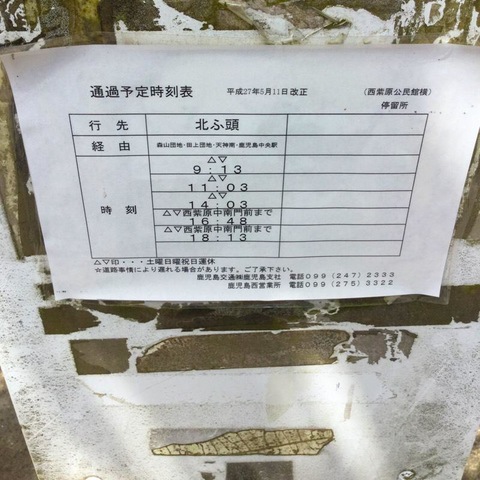 通過予定時刻表 平成27年5月11日改正 (西紫原公民館横)
停留所
行先 北ふ頭
経由 森山団地・田上団地・天神南・鹿児島中央駅
時刻
△▽
9:13
△▽
11:03
△▽
14:03
△▽西紫原中南門前まで
16:48
△▽西紫原中南門前まで
18:13
△▽印・・・土曜日曜祝日運休
☆道路事情により遅れる場合があります。ご了承下さい。
鹿児島交通㈱鹿児島支社 電話099(247)2333
鹿児島西営業所 電話099(275)3322